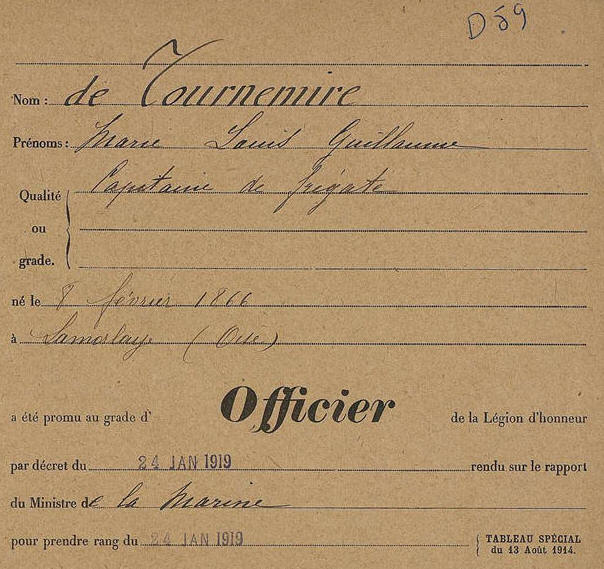 D59
Nom : de Tournemire
Prénoms : Marie Louis Guillaume
Qualité ou grade. Capitaine de frégate
né le 8 février 1866
à Lamorlaye (Oise)
a été promu au grade d' Officier de la Légion d'honneur
par décret du 24 JAN 1919 rendu sur le rapport
du Ministre de la Marine
pour prendre rang du 24 JAN 1919 TABLEAU SPÉCIAL
du 13 Août 1914.